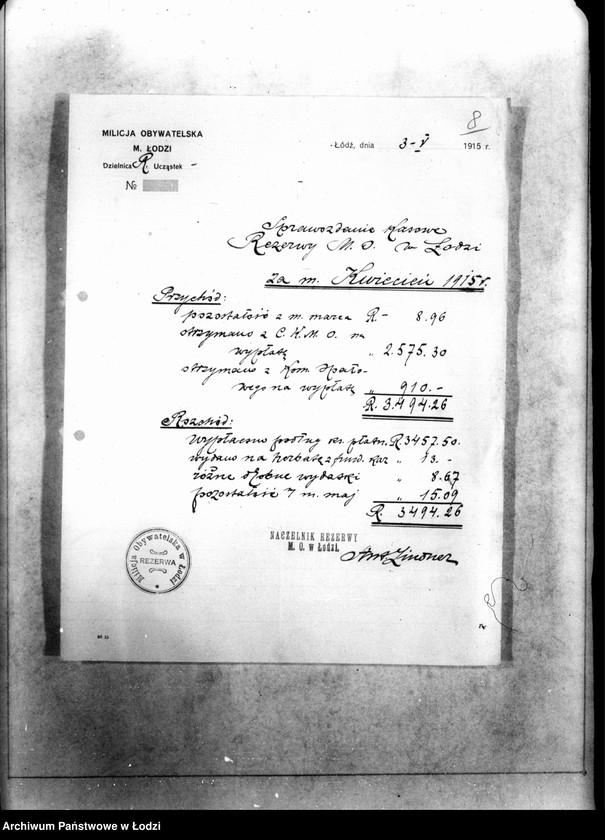 8
MILICJA OBYWATELSKA
M. ŁODZI
Dzielnica R. Ucząstek -
№
Łódź, dnia 3-V 1915 r.
Sprawozdanie Kasowe
Rezerwy M. O. w Łodzi
za m. Kwiecień 1915 r.
Przychód:
pozostałość z m. marca R - 8.96
otrzymano z C. K. M. O. na
wypłatę „ 2.575.30
otrzymano z Kom. Opało-
wego na wypłatę „ 910.-
R. 3.494.26
Rozchód:
wypłacono podług ks. płatn. R 3457.50.
wydano na herbatę z fund. „ 13.-
różne drobne wydatki „ 8.67
pozostałość m. maj „ 15.09
R. 3494.26
NACZELNIK REZERWY
M. O. w Łodzi.
Lindner
Milicja Obywatelska w Łodzi
REZERWA
Archiwum Państwowe w Łodzi